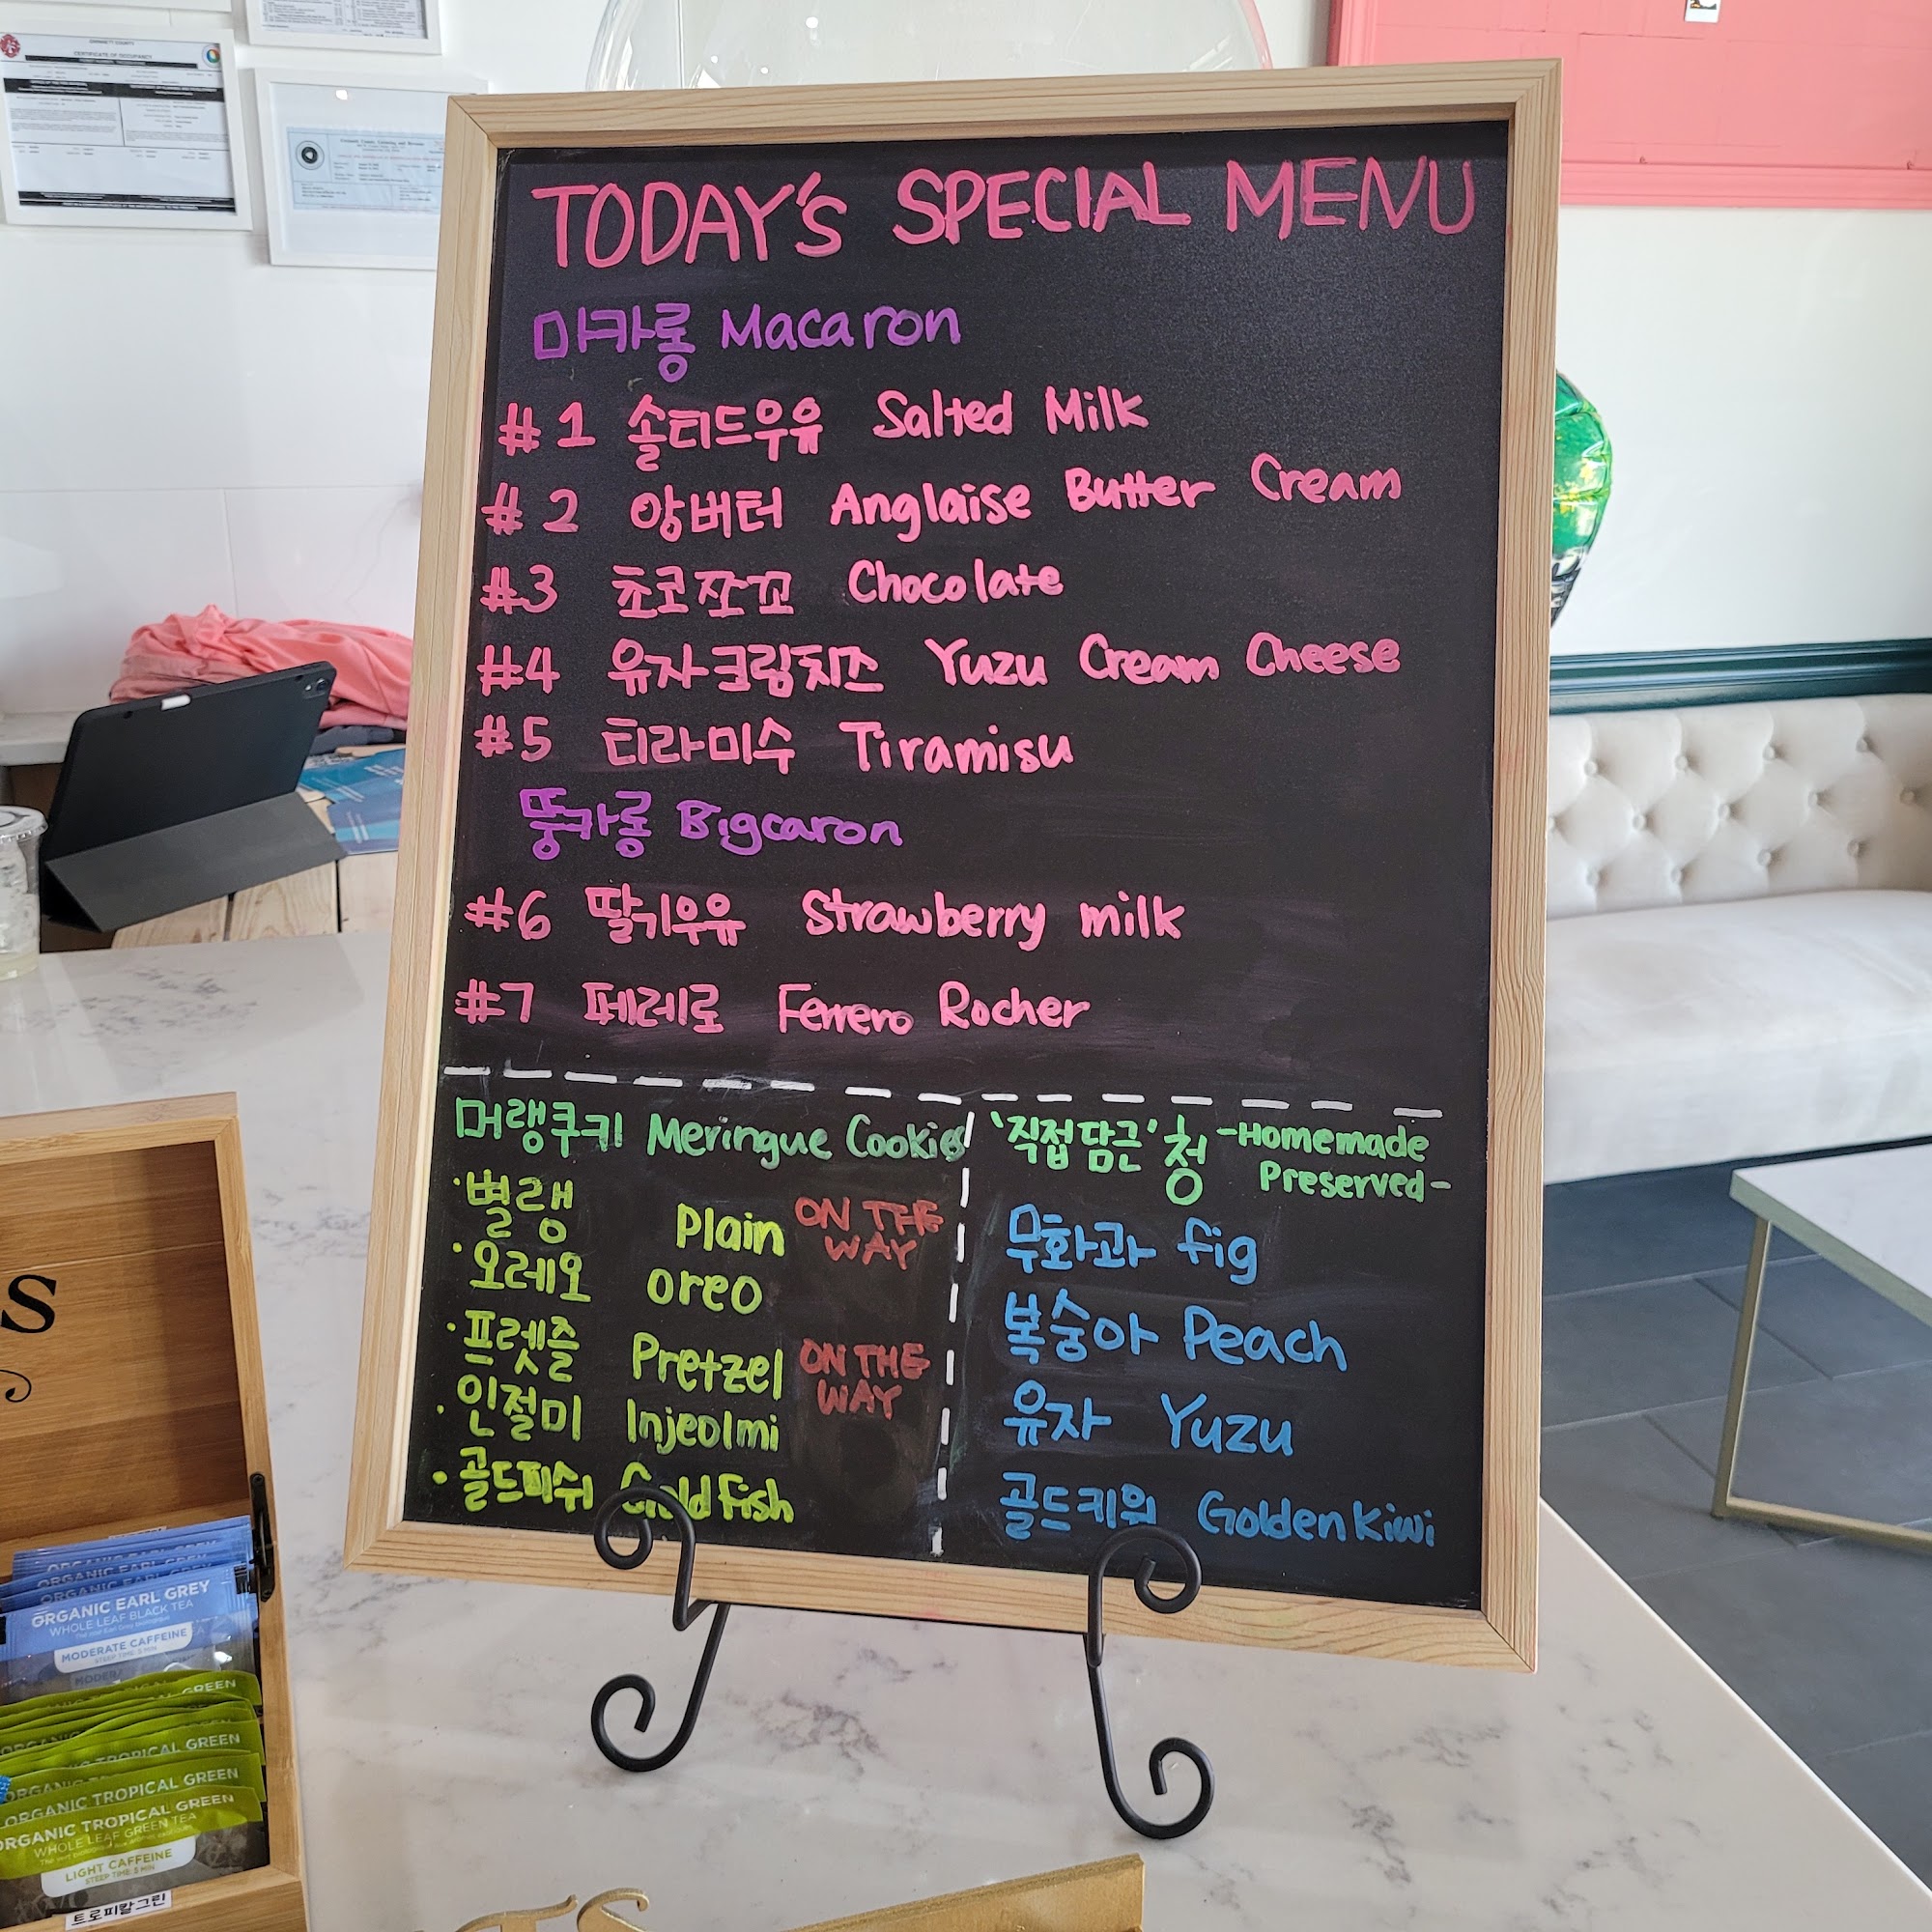 TODAY'S SPECIAL MENU
마카롱 Macaron
#1 솔티드우유 Salted Milk
#2 앙버터 Anglaise Butter Cream
#3 초코쪼꼬 Chocolate
#4 유자크림치즈 Yuzu Cream Cheese
#5 티라미수 Tiramisu
뚱카롱 Bigcaron
#6 딸기우유 Strawberry milk
#7 페레로 Ferrero Rocher
머랭쿠키 Meringue Cookies
·뽈랭 Plain ON THE WAY
·오레오 oreo
·프렛즐 Pretzel ON THE WAY
·인절미 Injeolmi
·골드피쉬 Gold Fish
'직접담근' 청 -Homemade
Preserved-
무화과 fig
복숭아 Peach
유자 Yuzu
골드키위 Golden Kiwi
GWINNETT COUNTY
CERTIFICATE OF OCCUPANCY
S
ORGANIC EARL GREY
ORGANIC EARL GREY
ORGANIC EARL GREY
WHOLE LEAF BLACK TEA
MODERATE CAFFEINE
STEEP TIME: 5 MIN
ORGANIC TROPICAL GREEN
ORGANIC TROPICAL GREEN
ORGANIC TROPICAL GREEN
WHOLE LEAF GREEN TEA
LIGHT CAFFEINE
STEEP TIME: 3 MIN
트로피칼그린